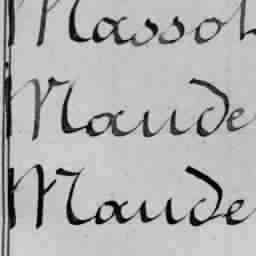 Massol
Maude
Maude